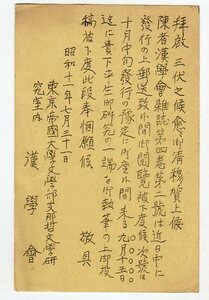 拝啓 三伏之候愈々御清穆賀上候
陳者漢學會雜誌第四卷第二號は近日中に
發行の上郵送致候間御閲覽被下度候次號は
十月中旬發行の豫定に御座候間來る九月十五日
迄に貴下平生御研究の一端を御執筆の上御投
稿被下度此段奉懇願候 敬具
昭和十一年七月三十一日
東京帝國大學文學部支那哲文學研
究室内
漢學會